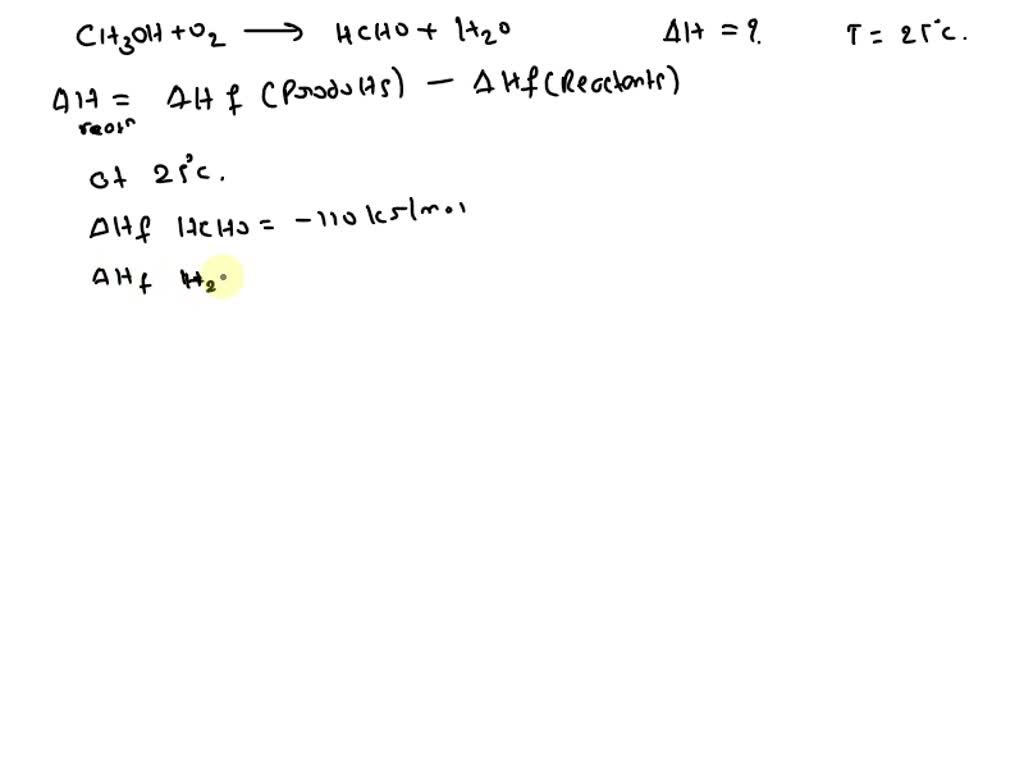 CH3OH + O2 ⟶ HCHO + H2O ΔH = ? T = 25°C.
ΔH reaxn = ΔHf (Products) − ΔHf (Reactants)
at 25°C.
ΔHf HCHO = −110 kJ/mol
ΔHf H2